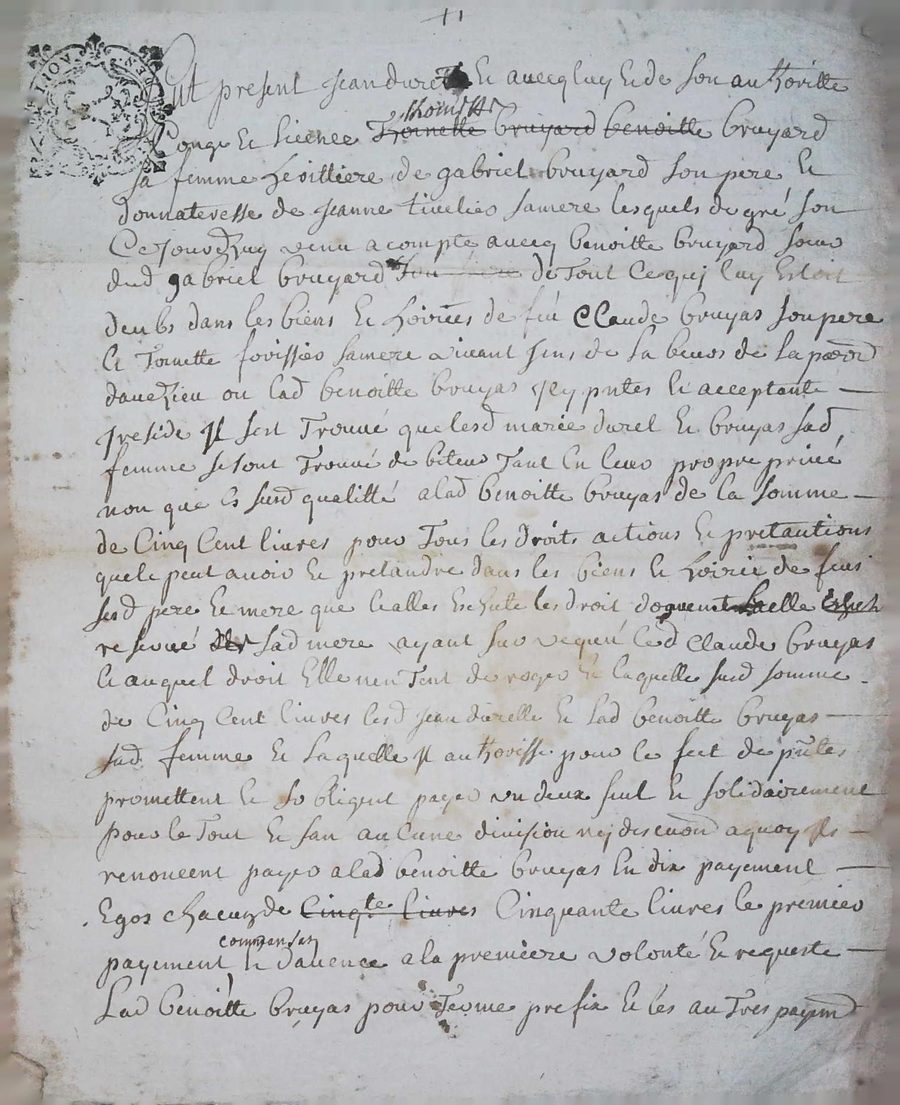 Fut present Jean durel Et avecq luy Et de son authoritte
thoinette
Conge Et licence Thoinette bruyard benoitte bruyard
sa femme heoittiere de gabriel bruyard son pere Et
donnateresse de Jeanne samere lesquels de gré son
Cejourdhuy venu a compte avecq benoitte bruyard soeur
dud gabriel bruyard de Tout Cequj luy Estoit
deubs dans les biens Et hoiries de feu Claude bruyas son pere
Et Toinette samere vivant de la de la
ou lad benoitte bruyas Et acceptante
Jl sest Trouvé que lesd marie durel Et bruyas sad
femme se sont Trouvé de biteur Tant En leur propre privé
non que Es susd qualitté a lad benoitte bruyas de la somme
de Cinq Cent livres pour Tous les droits actions Et pretantions
quele peut avoir Et pretandre dans les biens Et hoirie de feus
sesd pere Et mere que les droit
reservé sad mere ayant surveqeu led Claude bruyas
Et auquel droit Elle nen Tent de roger Et laquelle susd somme
de Cinq Cent livres lesd Jean durelle Et lad benoitte bruyas
sad femme Et laquelle Jl authorisse pour le fect de pntes
promettent Et sobligent payer un deux seul Et solidairement
pour le Tout Et san aucune division nej discution aquoy Jls
renoncent payer a lad benoitte bruyas En dix payement
Egos chacung de Cinqte livres Cinquante livres le premier
commansan
payement Et davence a la premiere volonté Et requeste
Lad benoitte bruyas pour Terme prefix Et les autres payemd